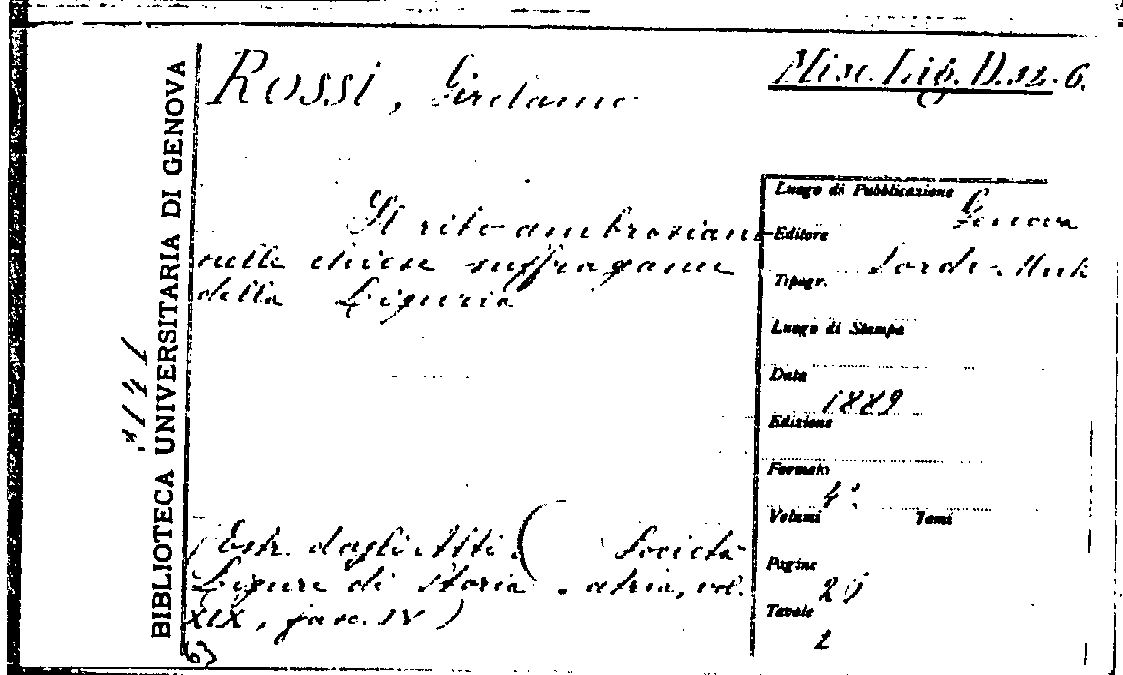 Rossi, Girolamo
Misc. Lig. D.32.6.
BIBLIOTECA UNIVERSITARIA DI GENOVA
Il rito ambrosiano
nelle chiese suffraganee
della Liguria
Luogo di Pubblicazione Genova
Editore
Tipogr. Sordo-Muti
Luogo di Stampa
Data 1889
Edizione
Formato 4°
Volumi Tomi
Pagine
Tavole 2
(Estr. dagli Atti ( Società
Ligure di Storia atria, vol.
XIX, fasc. IV)
63